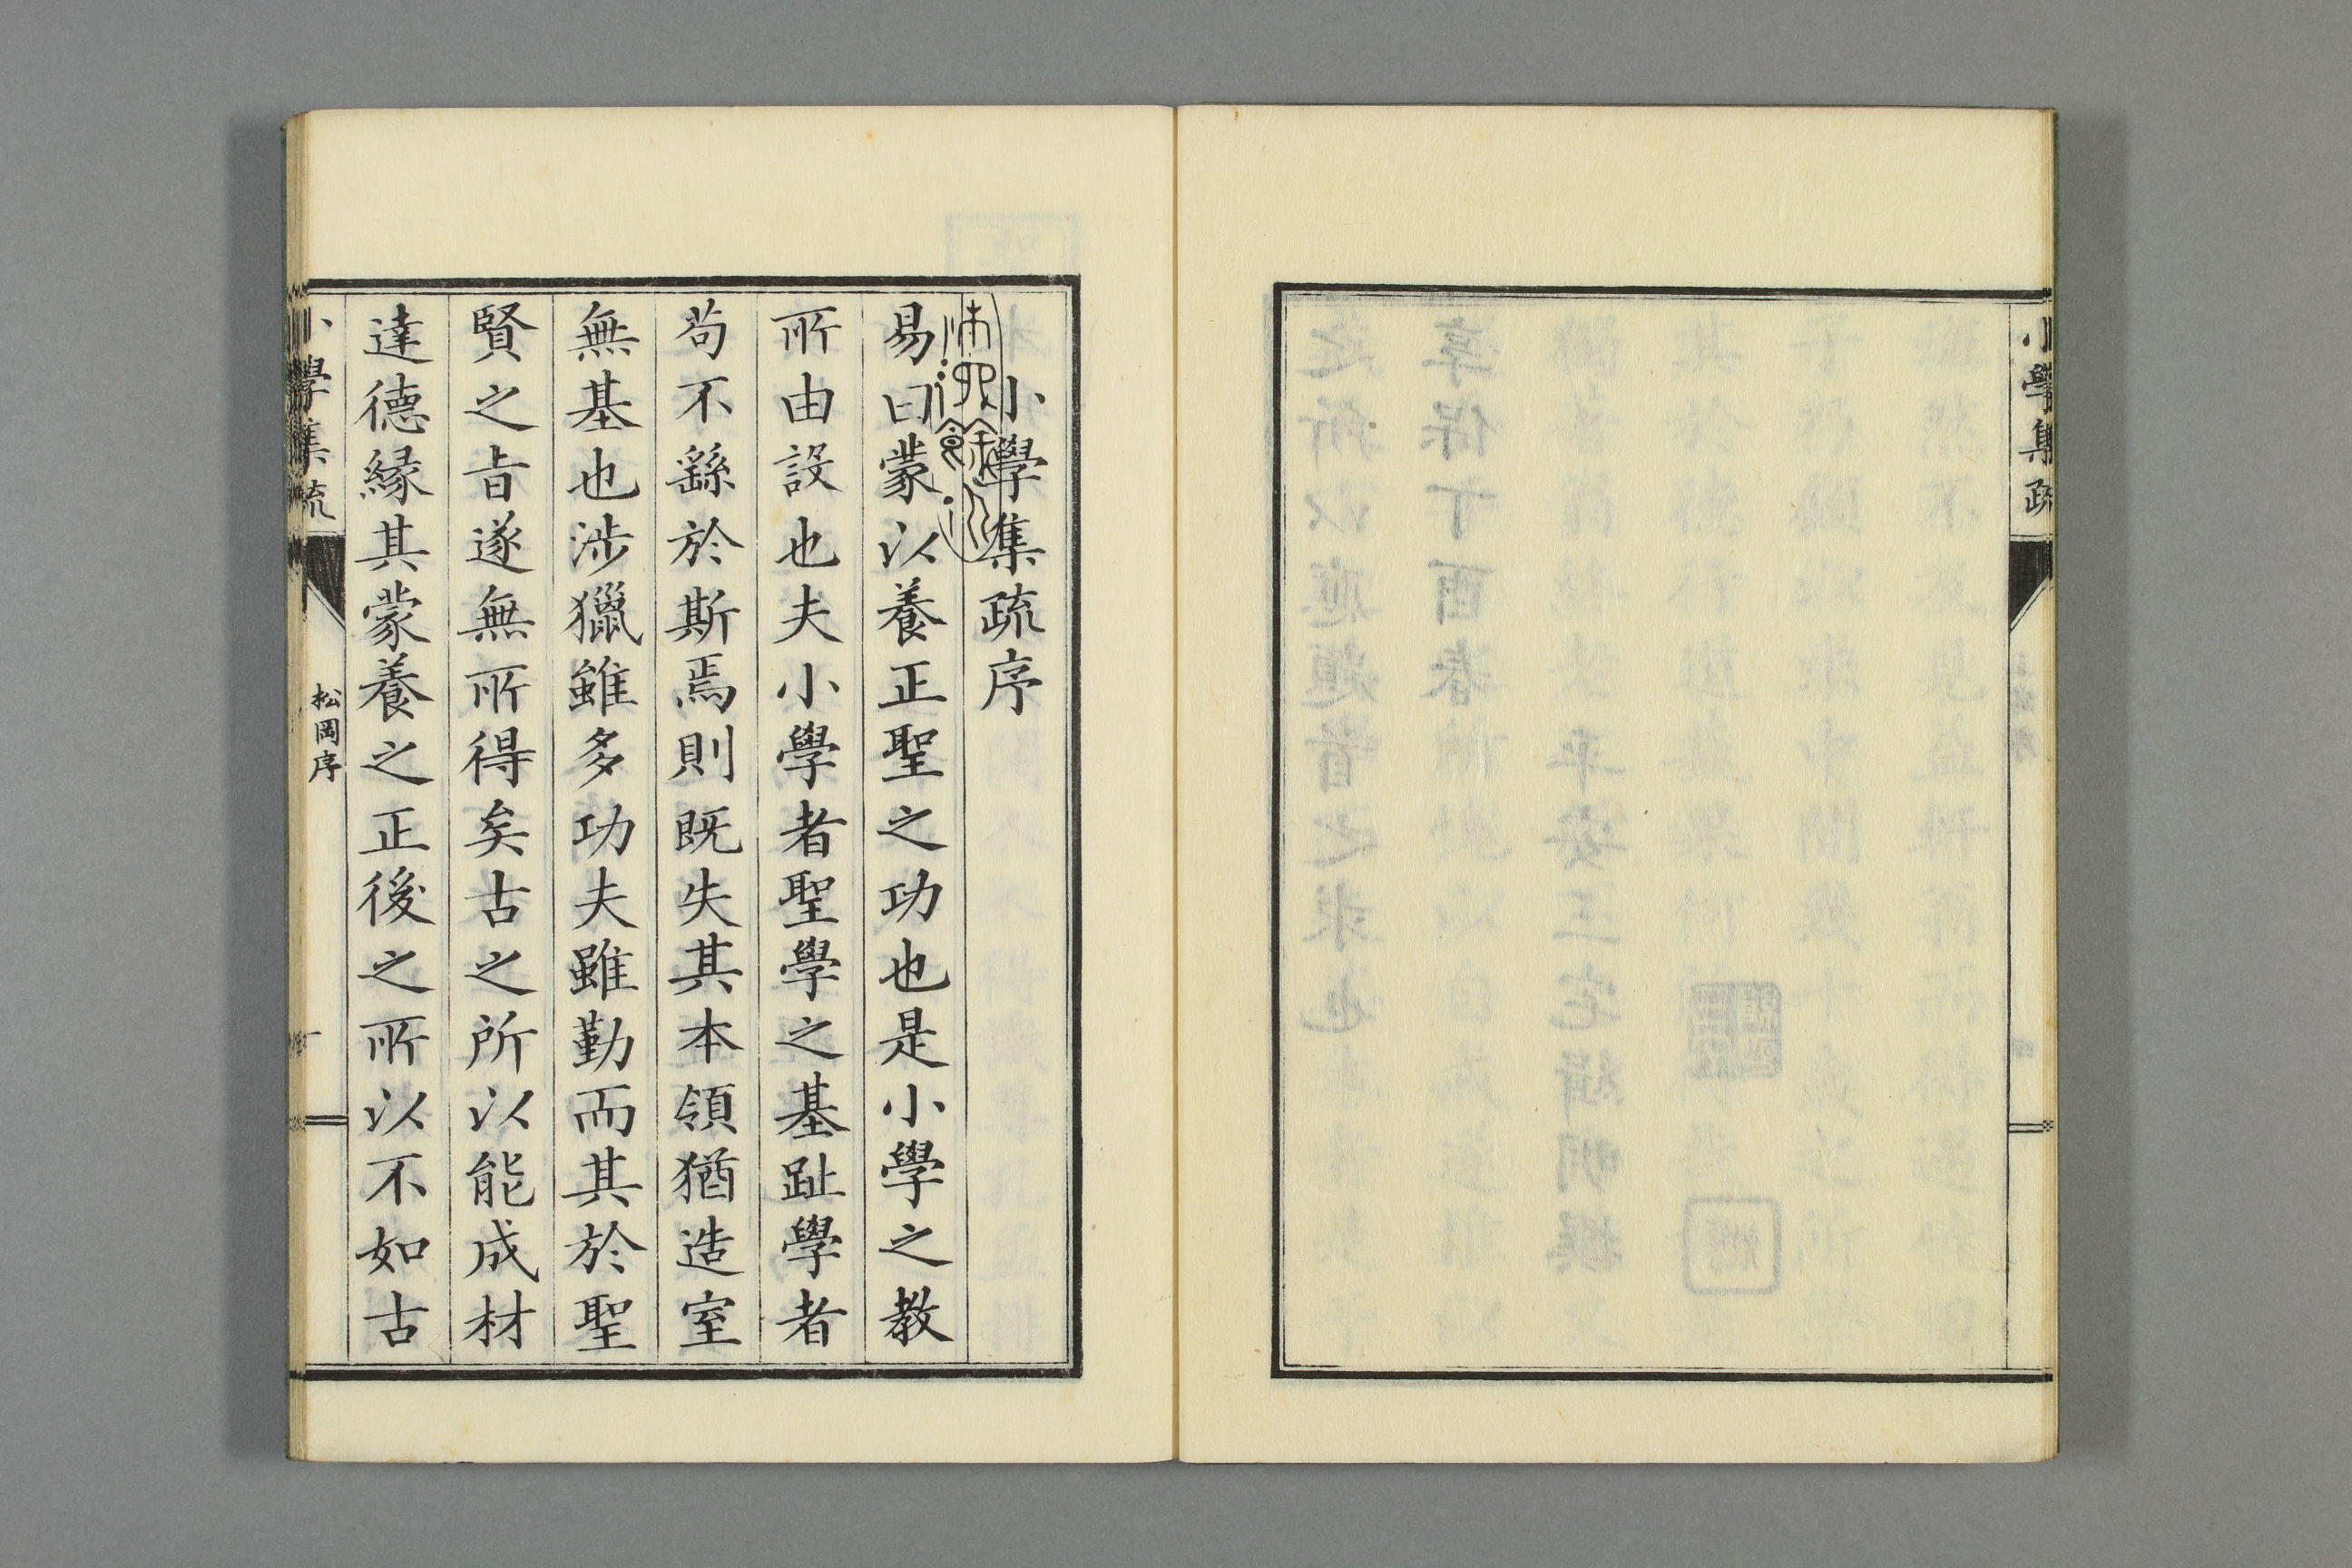 小學集疏
小學集疏序
易曰蒙以養正聖之功也是小學之教
所由設也夫小學者聖學之基趾學者
苟不繇於斯焉則既失其本領猶造室
無基也涉獵雖多功夫雖勤而其於聖
賢之旨遂無所得矣古之所以能成材
達德縁其蒙養之正後之所以不如古
小學集疏
松岡序